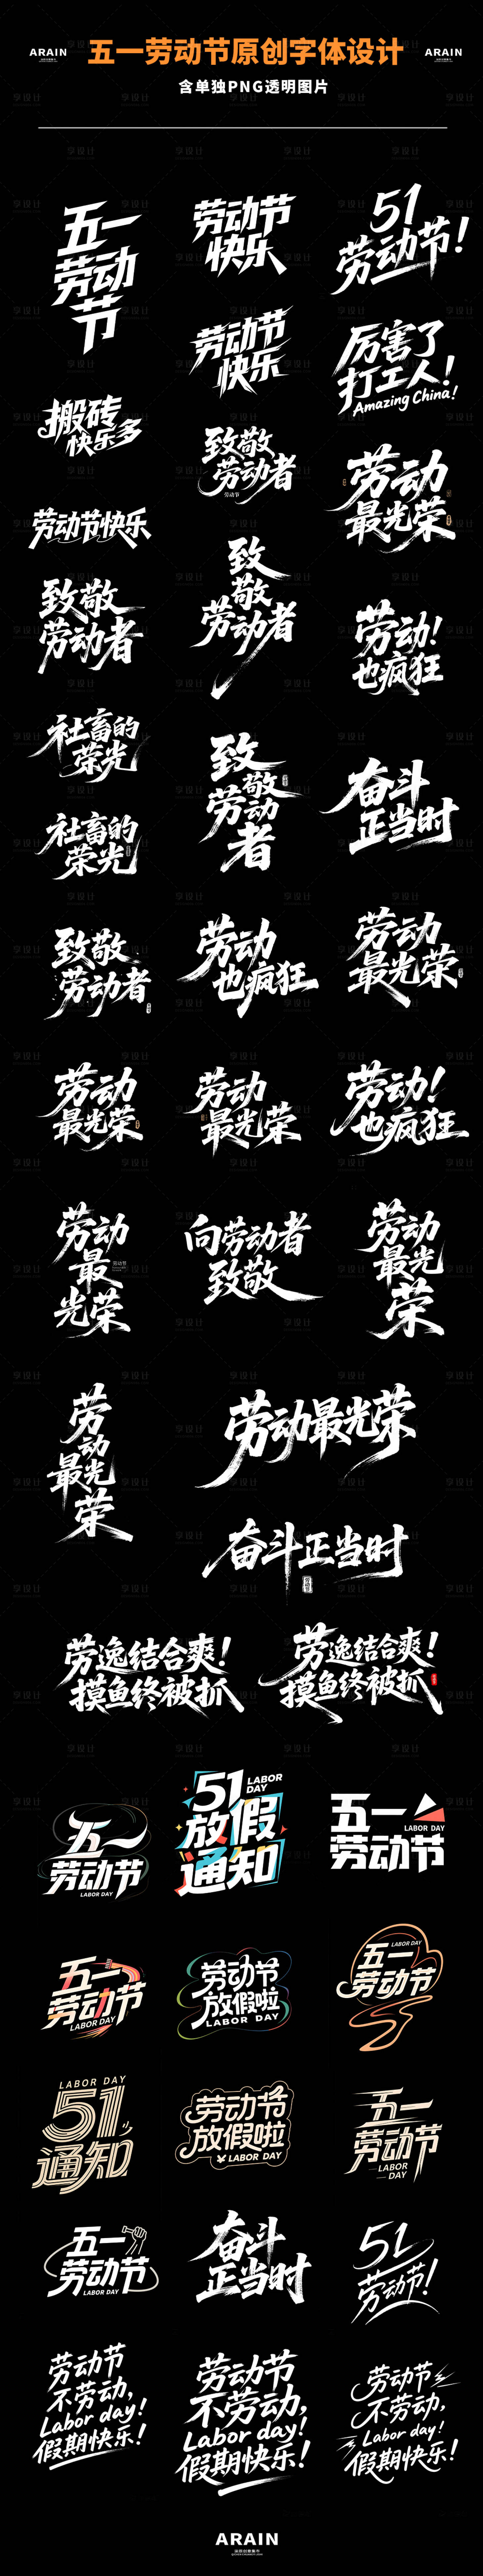 ARAIN
五一劳动节原创字体设计
ARAIN
含单独PNG透明图片
五一
劳动
节
劳动节
快乐
51
劳动节!
劳动节
快乐
厉害了
打工人!
Amazing China!
搬砖
快乐多
致敬
劳动者
劳动节
劳动
最光荣
劳动节快乐
致
敬
劳动者
致敬
劳动者
劳动!
也疯狂
社畜的
荣光
致
敬
劳动
者
奋斗
正当时
社畜的
荣光
致敬
劳动者
劳动
也疯狂
劳动
最光荣
劳动
最光荣
劳动
最光荣
劳动!
也疯狂
劳动
最
光荣
劳动节
向劳动者
致敬
劳动
最光
荣
劳
动
最光
荣
劳动最光荣
奋斗正当时
劳逸结合爽!
摸鱼终被抓
劳逸结合爽!
摸鱼终被抓
五一
劳动节
LABOR DAY
51
LABOR
DAY
放假
通知
五一
LABOR DAY
劳动节
五一
劳动节
LABOR DAY
劳动节
放假啦
LABOR DAY
LABOR DAY
五一
劳动节
LABOR DAY
51
通知
劳动节
放假啦
¥ LABOR DAY
五一
劳动节
LABOR
DAY
五一
劳动节
LABOR DAY
奋斗
正当时
51
劳动节!
劳动节
不劳动,
Labor day!
假期快乐!
劳动节
不劳动,
Labor day!
假期快乐!
劳动节
不劳动,
Labor day!
假期快乐!
ARAIN